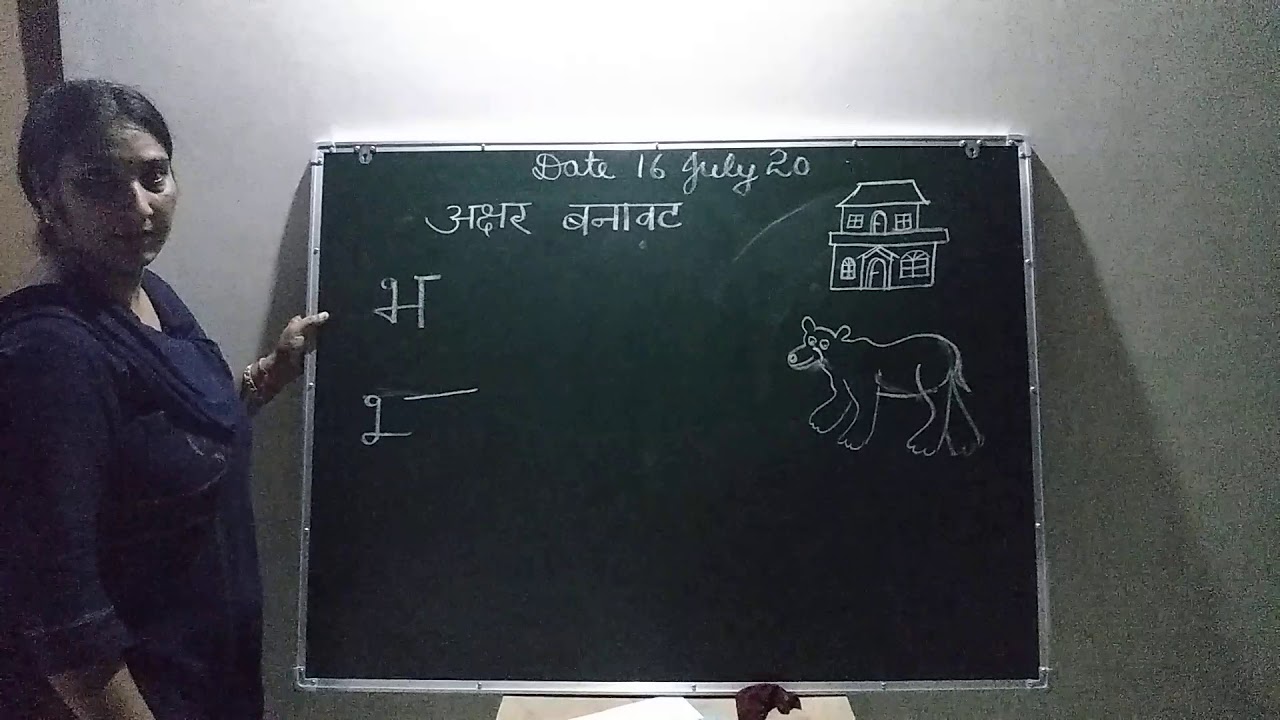 Date 16 July 20
अक्षर बनावट
भ